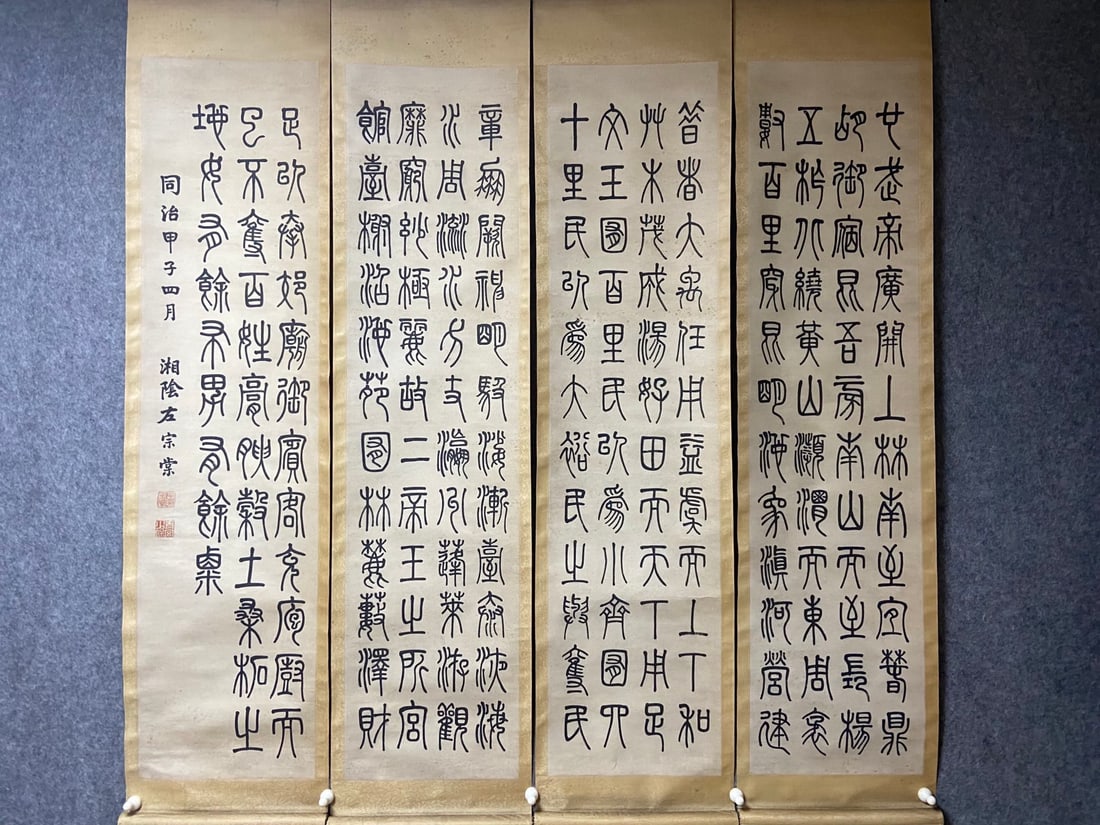 武帝廣開上林南至宜春鼎
胡御宿昆吾旁南山而至長楊
五柞北繞黃山瀕渭而東周袤
數百里穿昆明池象滇河營建
昔者大禹任用益虞而上下和
艸木茂成湯好田而天下用足
文王囿百里民以為小齊囿四
十里民以為大裕民之與奪民
章鳳闕神明馺娑漸臺泰液海
水周流水方丈瀛洲蓬萊游觀
靡窮妙極麗故二帝王之所宮
館臺榭沼池苑囿林麓藪澤財
足以奉郊廟御賓客充庖廚而
已不奪百姓膏腴穀土桑柘之
地女有餘布男有餘粟
同治甲子四月 湘陰左宗棠